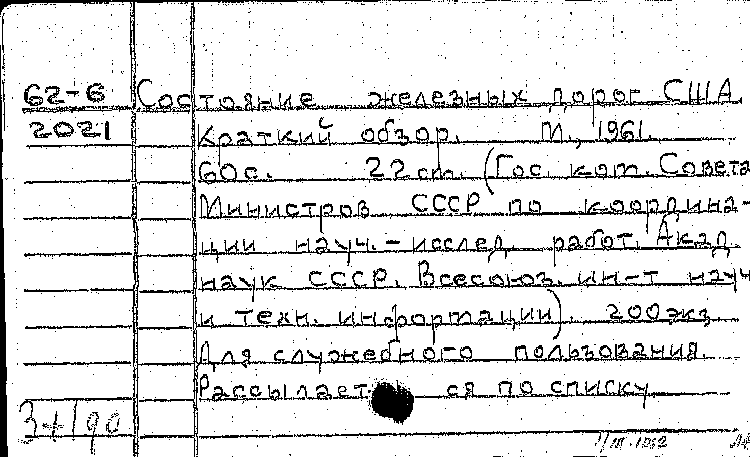 62-6 Состояние железных дорог США.
2021 Краткий обзор. М., 1961.
60с. 22 cm. (Гос. ком. Совета
Министров СССР по координа-
ции науч.-исслед. работ. Акад.
наук СССР. Всесоюз. ин-т науч
и техн. информации). 200 экз.
Для служебного пользования.
Рассылает ся по списку